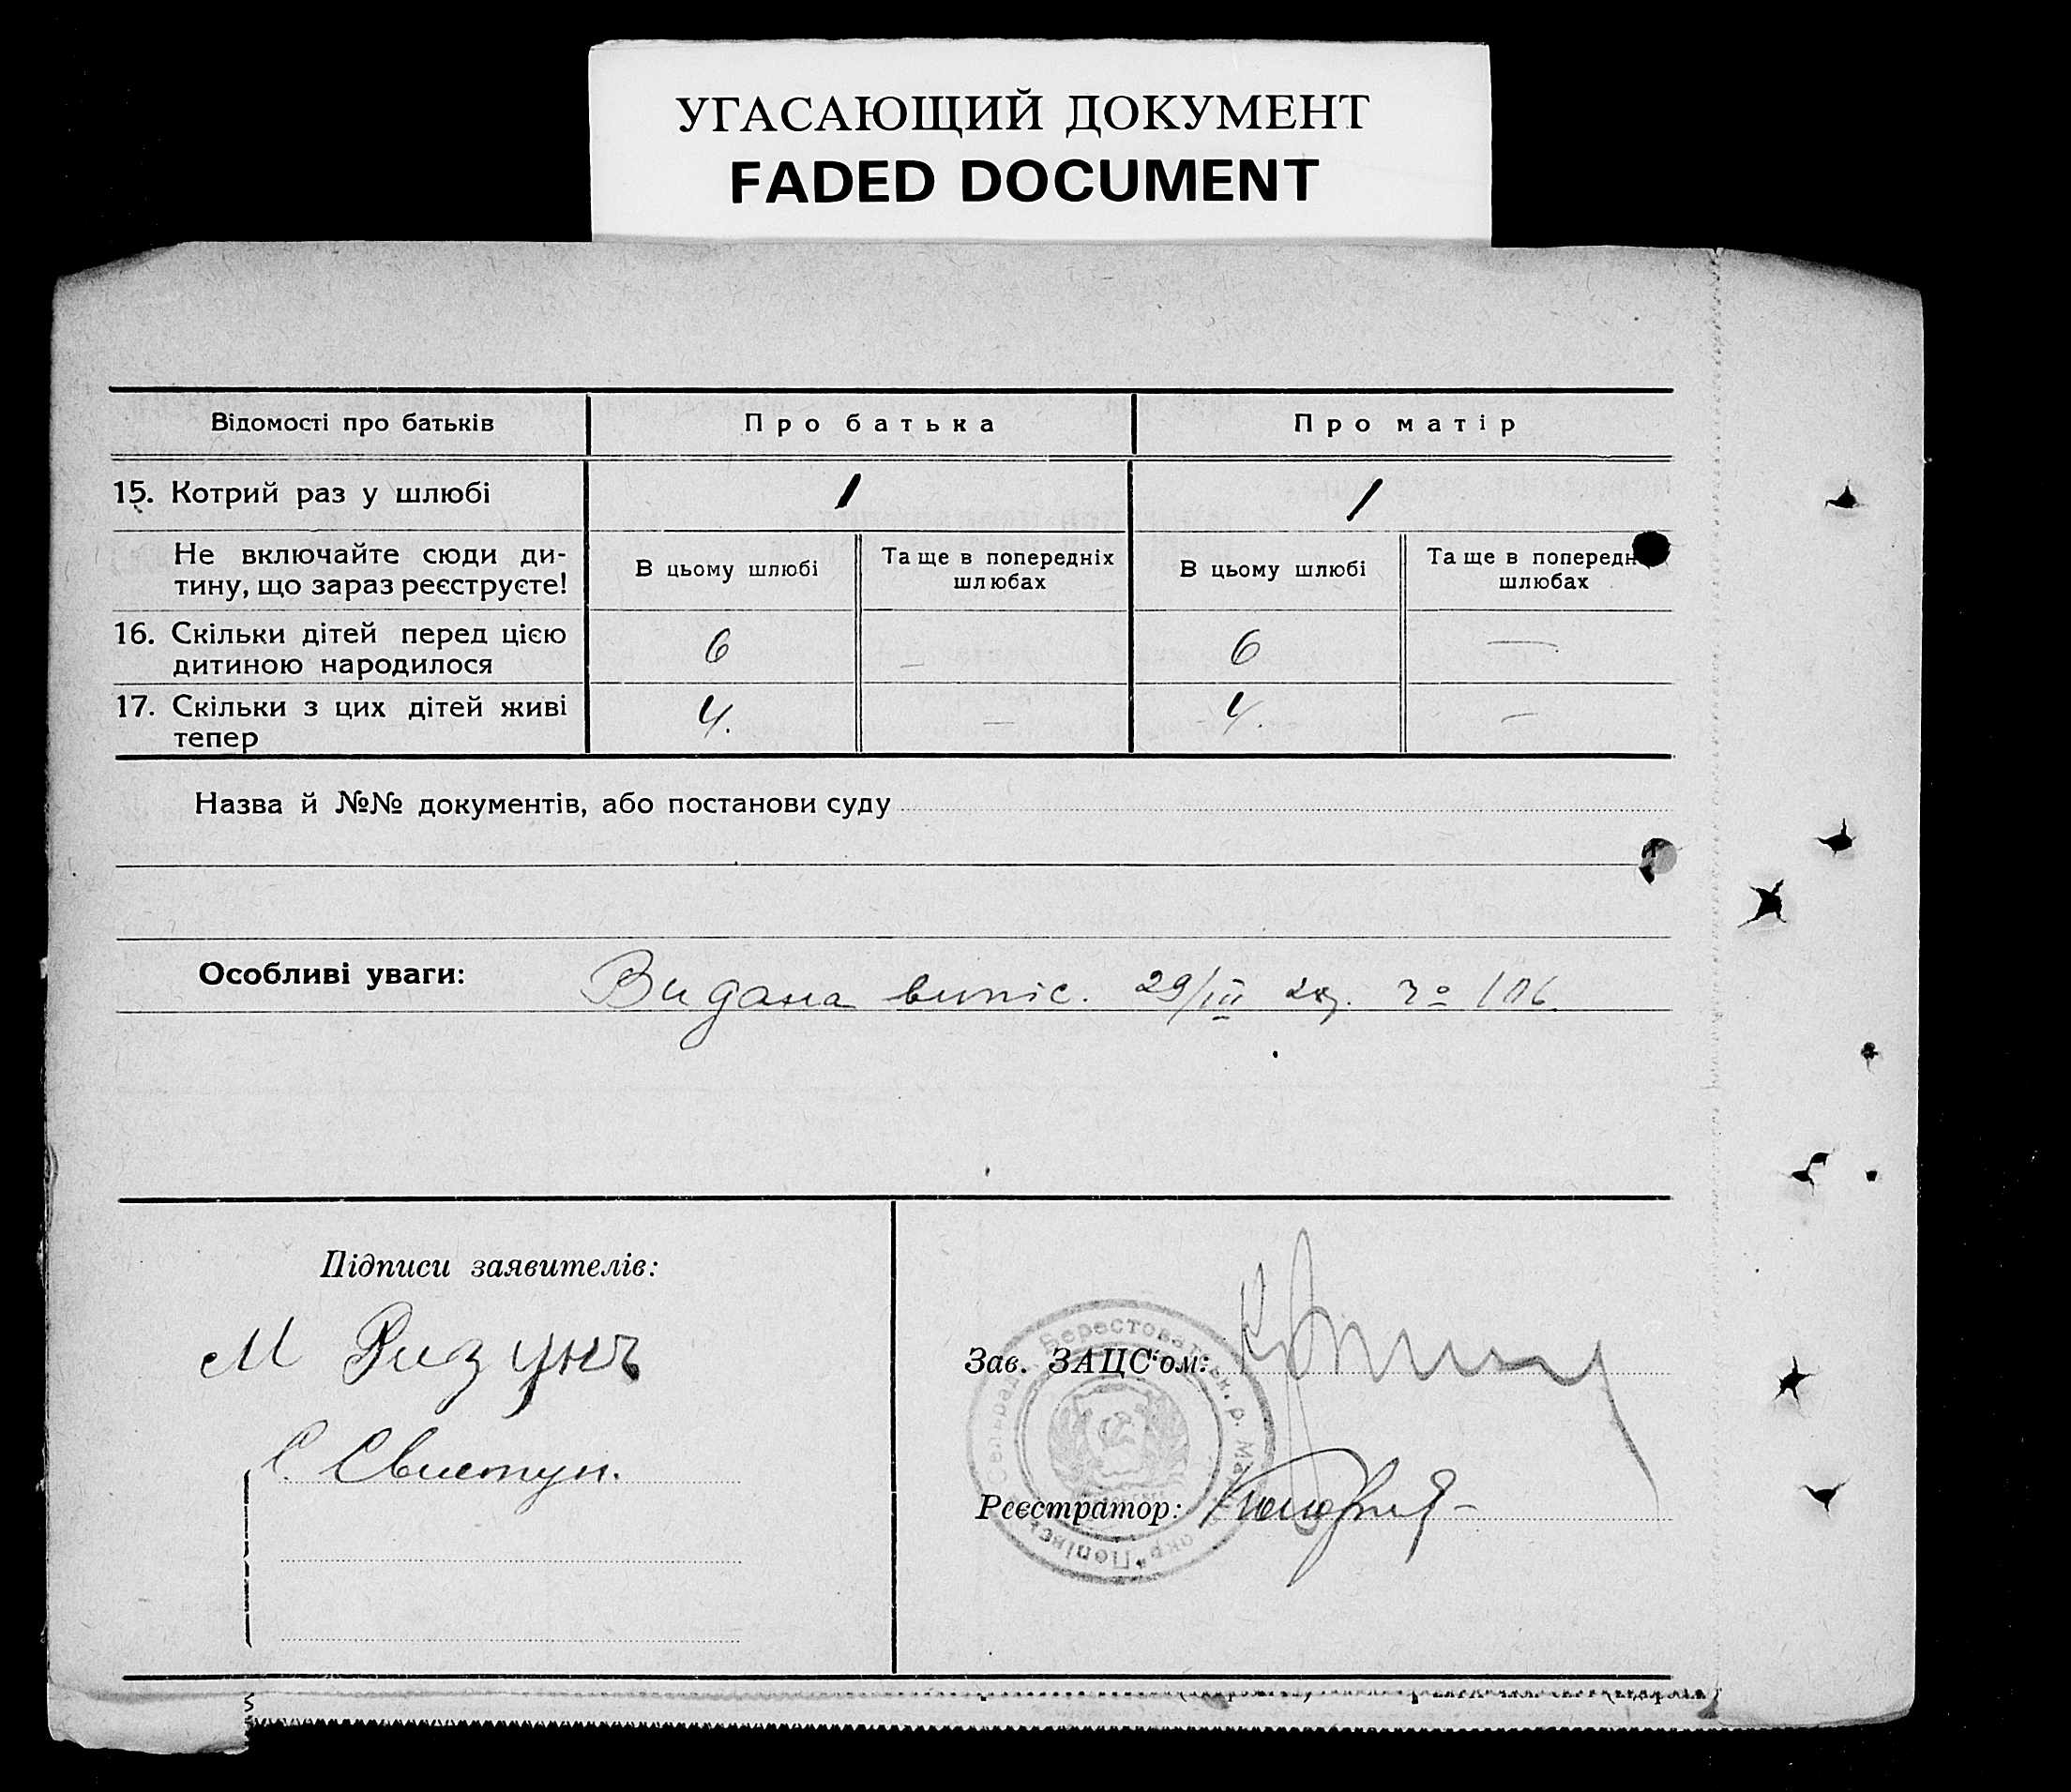 УГАСАЮЩИЙ ДОКУМЕНТ
FADED DOCUMENT
Відомості про батьків
Про батька
Про матір
15. Котрий раз у шлюбі
1
1
Не включайте сюди ди-
тину, що зараз реєструєте!
В цьому шлюбі
Та ще в попередніх
шлюбах
В цьому шлюбі
Та ще в попередн
шлюбах
16. Скільки дітей перед цією
дитиною народилося
6
—
6
—
17. Скільки з цих дітей живі
тепер
4.
—
4.
—
Назва й №№ документів, або постанови суду
Особливі уваги:
Видана випіс. 29/III 106
Підписи заявителів:
М Ризунъ
С. Свистун.
Зав. ЗАЦС'ом:
Реєстратор: